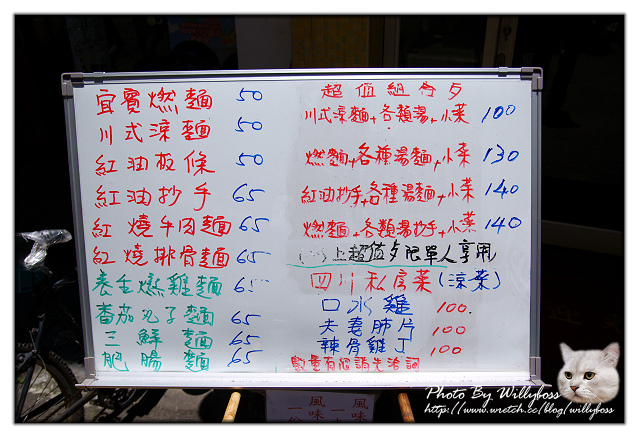 宜賓燃麵 50
川式涼麵 50
紅油板條 50
紅油抄手 65
紅燒牛肉麵 65
紅燒排骨麵 65
養生燉雞麵 65
番茄丸子麵 65
三鮮麵 65
肥腸麵 65
超值組合夕
川式涼麵+各類湯+小菜 100
燃麵+各種湯麵+小菜 130
紅油抄手+各種湯麵+小菜 140
燃麵+各類湯抄手+小菜 140
上超值夕限單人享用
四川私房菜(涼菜)
口水雞 100.
夫妻肺片 100
辣骨雞丁 100
數量有限請先洽詢
風味
風味
Photo By Willyboss
http://www.wretch.cc/blog/willyboss